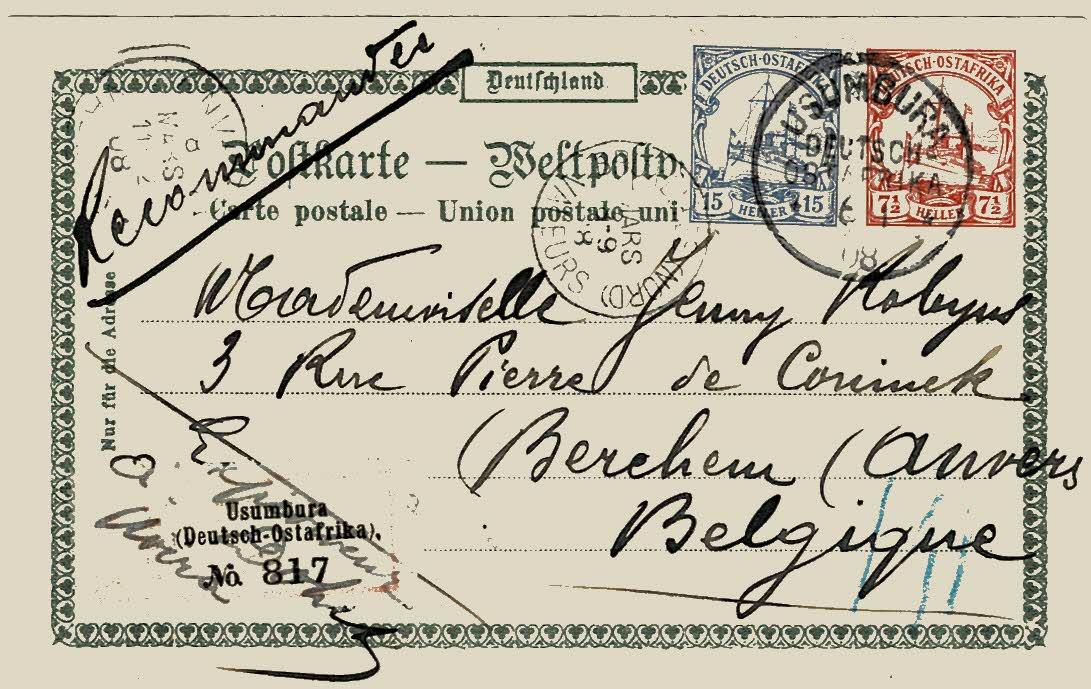 Recommandée
Deutschland
Postkarte — Weltpostv
Carte postale — Union postale uni
DEUTSCH-OSTAFRIKA
15 HELLER 15
DEUTSCH-OSTAFRIKA
7½ HELLER 7½
USUMBURA
DEUTSCH-
OSTAFRIKA
08
8
MARS
11
08
ANVERS (NORD)
MARS
8-9
Nur für die Adresse
Mademoiselle Jenny Robyns
3 Rue Pierre de Coninck
(Berchem (Anvers
Belgique
Usumbura
(Deutsch-Ostafrika).
No. 817